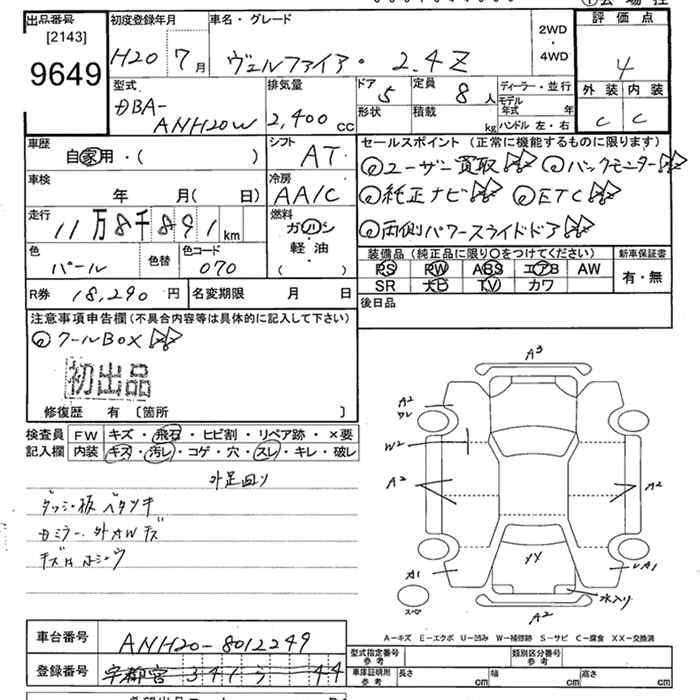 出品番号
[2143]
9649
初度登録年月
H20 7月
車名・グレード
ヴェルファイア・ 2.4Z
2WD
・
4WD
評価点
4
外装 内装
C C
型式
DBA-
ANH20W
排気量
2,400cc
ドア
5
形状
定員
8人
積載
kg
ディーラー・並行
モデル年式 年
ハンドル 左・右
車歴
自家用・( )
シフト
AT
車検
年 月( 日)
冷房
AA/C
走行
11万8千891km
燃料
ガソリン
軽・油
( )
色
パール
色替
色コード
070
R券 18,290円
名変期限 月 日
セールスポイント (正常に機能するものに限ります)
ユーザー買取
バックモニター
純正ナビ
ETC
両側パワースライドドア
装備品 (純正品に限り○をつけてください)
PS PW ABS エアB AW
SR 大B TV カワ
新車保証書
有・無
後日品
注意事項申告欄(不具合内容等は具体的に記入して下さい)
クールBOX
初出品
修復歴 有 〔箇所 〕
検査員記入欄
FW キズ・飛石・ヒビ割・リペア跡・×要
内装 キズ・汚レ・コゲ・穴・スレ・キレ・破レ
外足回り
ダッシュ板ベタツキ
A3
A2
W2
A2
A2
XX
A1
A2
スペ
水入り
A-キズ E-エクボ U-凹み W-補修跡 S-サビ C-腐食 XX-交換済
車台番号 ANH20-8012249
登録番号 宇都宮 341 44
型式指定番号
参考
類別区分番号
参考
車庫証明用
参考
長さ cm
幅 cm
高さ cm